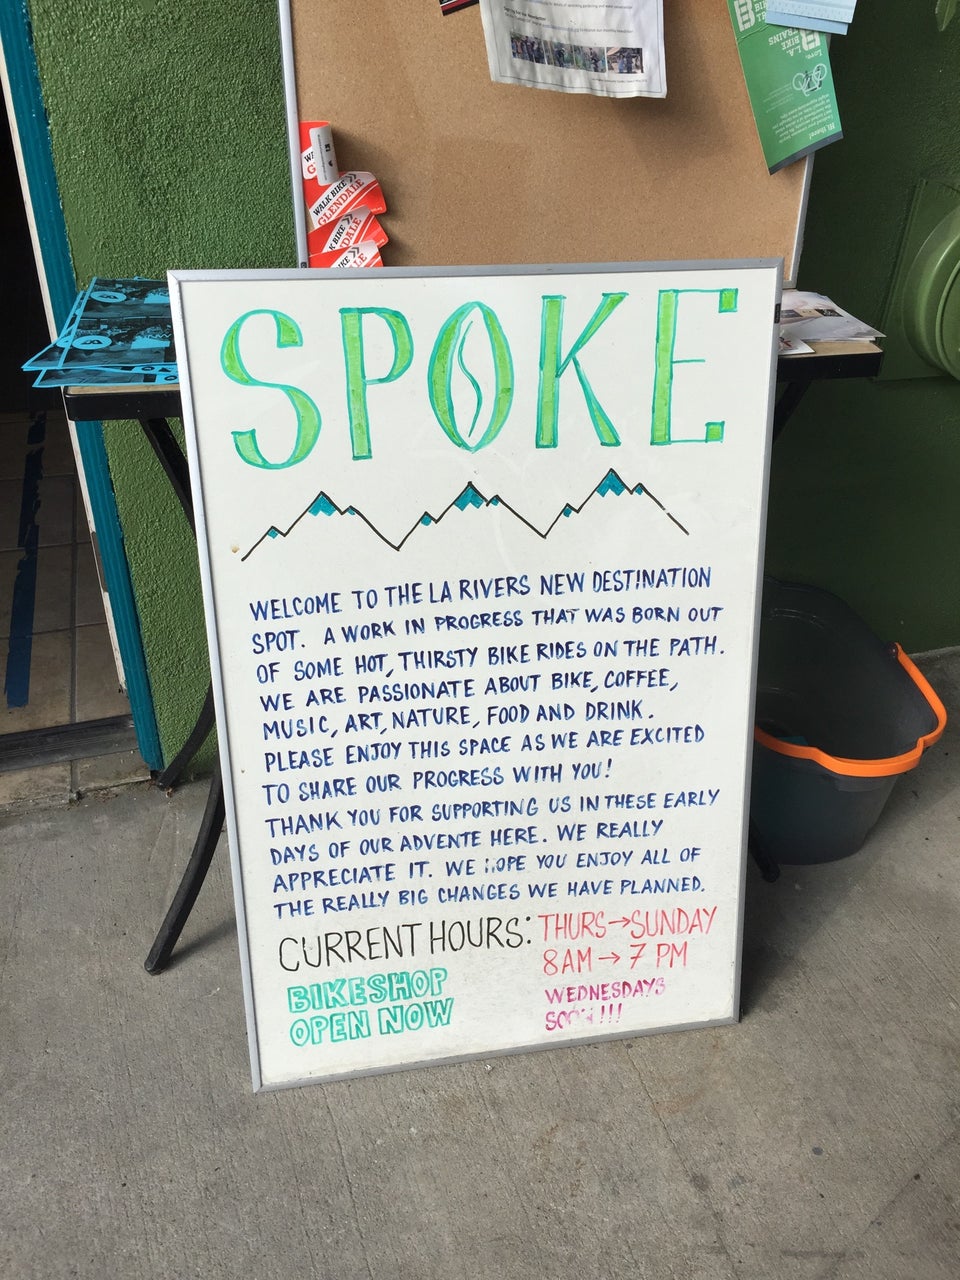 WALK BIKE
GLENDALE
SPOKE
WELCOME TO THE LA RIVERS NEW DESTINATION
SPOT. A WORK IN PROGRESS THAT WAS BORN OUT
OF SOME HOT, THIRSTY BIKE RIDES ON THE PATH.
WE ARE PASSIONATE ABOUT BIKE, COFFEE,
MUSIC, ART, NATURE, FOOD AND DRINK.
PLEASE ENJOY THIS SPACE AS WE ARE EXCITED
TO SHARE OUR PROGRESS WITH YOU!
THANK YOU FOR SUPPORTING US IN THESE EARLY
DAYS OF OUR ADVENTE HERE. WE REALLY
APPRECIATE IT. WE HOPE YOU ENJOY ALL OF
THE REALLY BIG CHANGES WE HAVE PLANNED.
CURRENT HOURS: THURS→SUNDAY
8AM→7 PM
BIKESHOP
OPEN NOW
WEDNESDAYS
SOON!!!